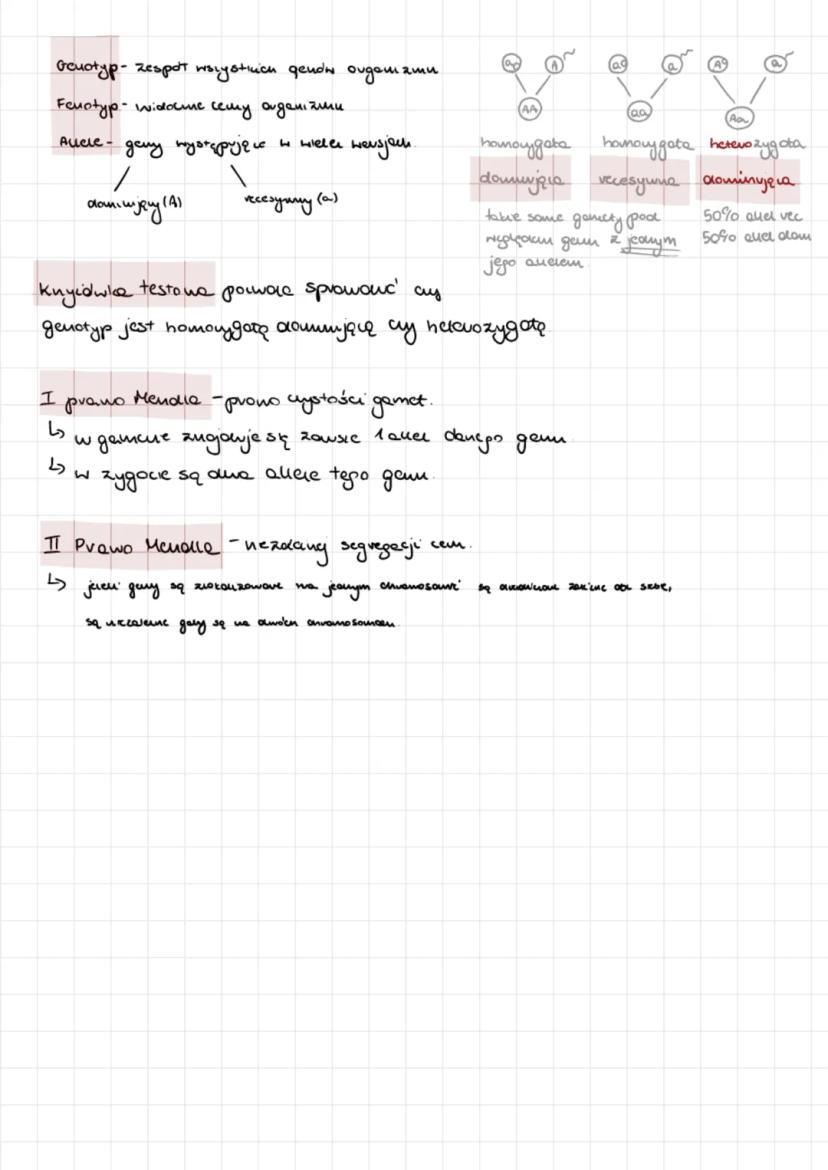 Genotyp - zespół wszystkich genów organizmu
Fenotyp - widoczne cechy organizmu
Allele - geny występujące w wielu wersjach
dominujący (A)
recesywny (a)
A
a
a
AA
aa
Aa
homozygota
homozygota
heterozygota
dominująca
recesywna
dominująca
takie same gamety pod
względem genu z jednym
jego allelem.
50% allel rec
50% allel dom
Krzyżówka testowa pozwala sprawdzić czy
genotyp jest homozygotą dominującą czy heterozygotą
I prawo Mendla - prawo czystości gamet.
↳ w gamecie znajduje się zawsze 1 allel danego genu
↳ w zygocie są dwa allele tego genu.
II Prawo Mendla - niezależnej segregacji cech.
↳ jeżeli geny są zlokalizowane na jednym chromosomie są zależne od siebie,
są niezależne gdy są na dwóch chromosomach.